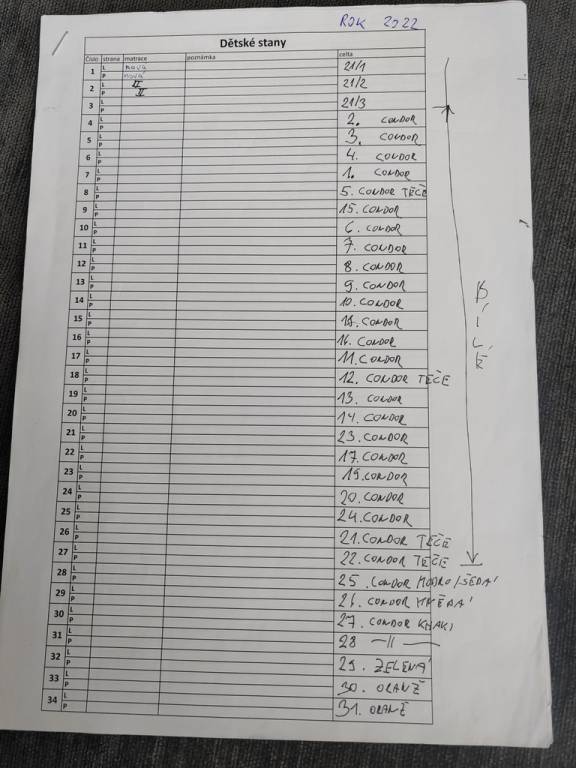 ROK 2022
Dětské stany
Číslo strana matrace poznámka celta
1 L nová 21/1
P nová
2 L II 21/2
P II
3 L 21/3
P
4 L 2. CONDOR
P
5 L 3. CONDOR
P
6 L 4. CONDOR
P
7 L 1. CONDOR
P
8 L 5. CONDOR TEČE
P
9 L 15. CONDOR
P
10 L 6. CONDOR
P
11 L 7. CONDOR
P
12 L 8. CONDOR
P
13 L 9. CONDOR
P
14 L 10. CONDOR
P
15 L CONDOR
P
16 L 16. CONDOR
P
17 L 11. CONDOR
P
18 L 12. CONDOR TEČE
P
19 L 13. CONDOR
P
20 L 14. CONDOR
P
21 L 23. CONDOR
P
22 L 17. CONDOR
P
23 L 19. CONDOR
P
24 L 20. CONDOR
P
25 L 24. CONDOR
P
26 L 21. CONDOR TEČE
P
27 L 22. CONDOR TEČE
P
28 L 25. CONDOR MODRO/ŠEDÁ
P
29 L 26. CONDOR HNĚDÁ
P
30 L 27. CONDOR KHAKI
P
31 L 28 —II—
P
32 L 29. ZELENÁ
P
33 L 30. ORANŽ
P
34 L 31. ORANŽ
P
BÍLÉ